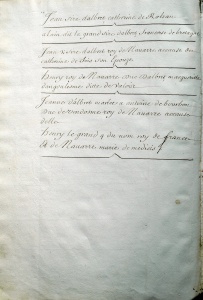 Jean sire dalbret catherine de Rohan
alain dit le grand sire dalbret francoise de bretagne
Jean sire dalbret roy de Navarre
catherine de foix son espouse
Henry roy de Navarre sire dalbret marguerite
dangoulesme duc de valois
Jeanne dalbret mariee a antoine de bourbon
duc de vendosme roy de Navarre
delle
Henry le grand 4 du nom roy de france
et de Navarre marie de medicis